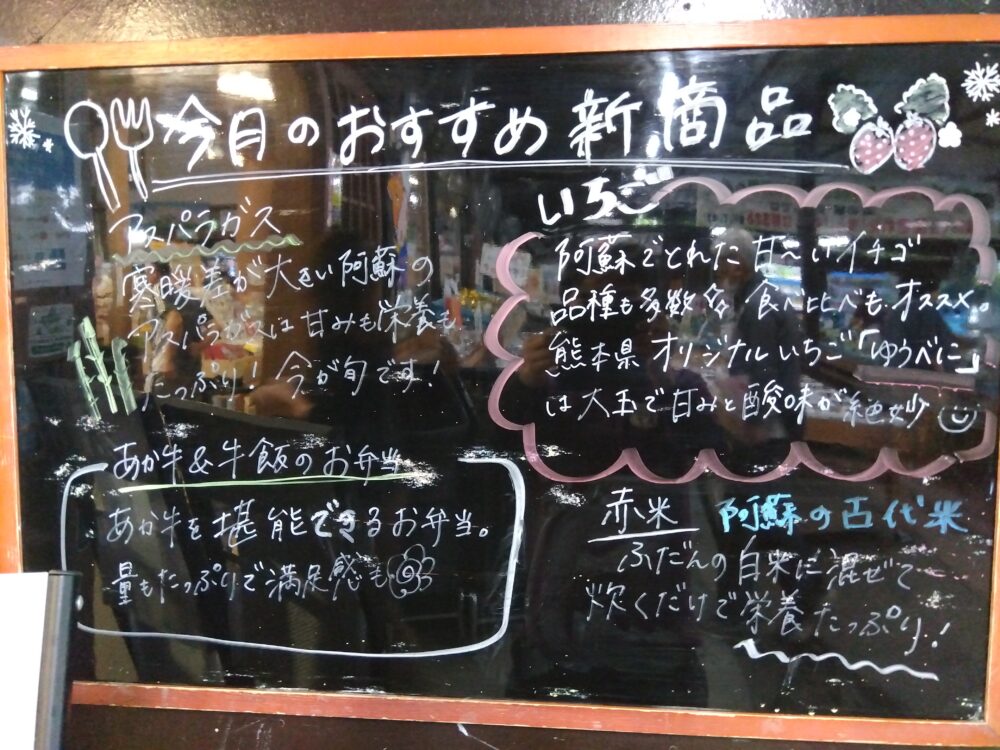 今月のおすすめ新商品
アスパラガス
寒暖差が大きい阿蘇の
アスパラガスは甘みも栄養も
たっぷり！今が旬です！
あか牛&牛飯のお弁当
あか牛を堪能できるお弁当。
量もたっぷりで満足感も◎
いちご
阿蘇でとれた甘〜いイチゴ
品種も多数多 食べ比べもオススメ。
熊本県オリジナルいちご「ゆうべに」
は大玉で甘みと酸味が絶妙
赤米 阿蘇の古代米
ふだんの白米に混ぜて
炊くだけで栄養たっぷり！